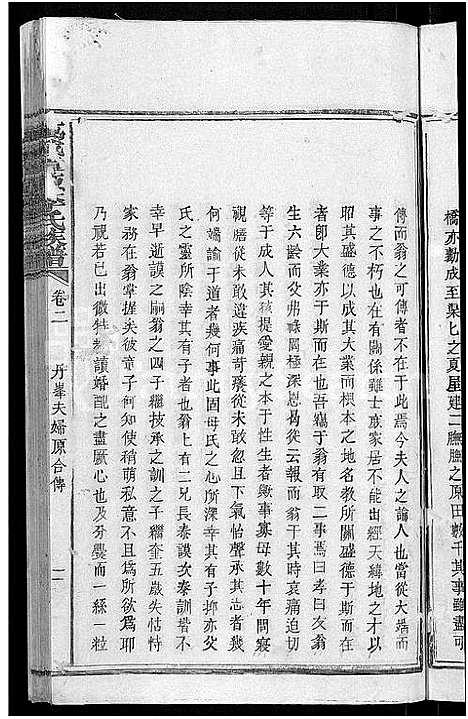 橋亦勷成至梁匕之夏星建二膴膴之原田數千其事雖盡可
傳而翁之可傳者不在于此焉今夫人之論人也當從大端而
事之不朽也在有關係雖士庶家居不能出經天緯地之才以
昭其盛德以成其大業而根本之地名教所關盛德于斯而在
者卽大業亦于斯而在也吾獵于翁有取二事焉曰孝曰友翁
生六齡而父卽祿歸罔極深恩曷從云報而翁于其時哀痛迫切
等于成人其孩提愛親之本于性生者歟事寡母數十年問寢
視膳從未敢違疾痛苛癢從未敢且下氣怡聲承其志者幾
何端諭于道者幾何事此固母氏之心所深幸其有子抑亦父
氏之靈所陰幸其有子者也翁上有二兄長泰謨次泰訓皆不
幸早逝謨之嗣翁之四子繼技承之訓之子繼奎五歲失怙恃
家務不一在翁掌握矣彼童子何知使稍萌私意不且爲所欲爲耶
乃視若已出微特教讀婚配之盡厥心也及分爨而一絲一粒
卷二
丹峯夫婦原合傳
一